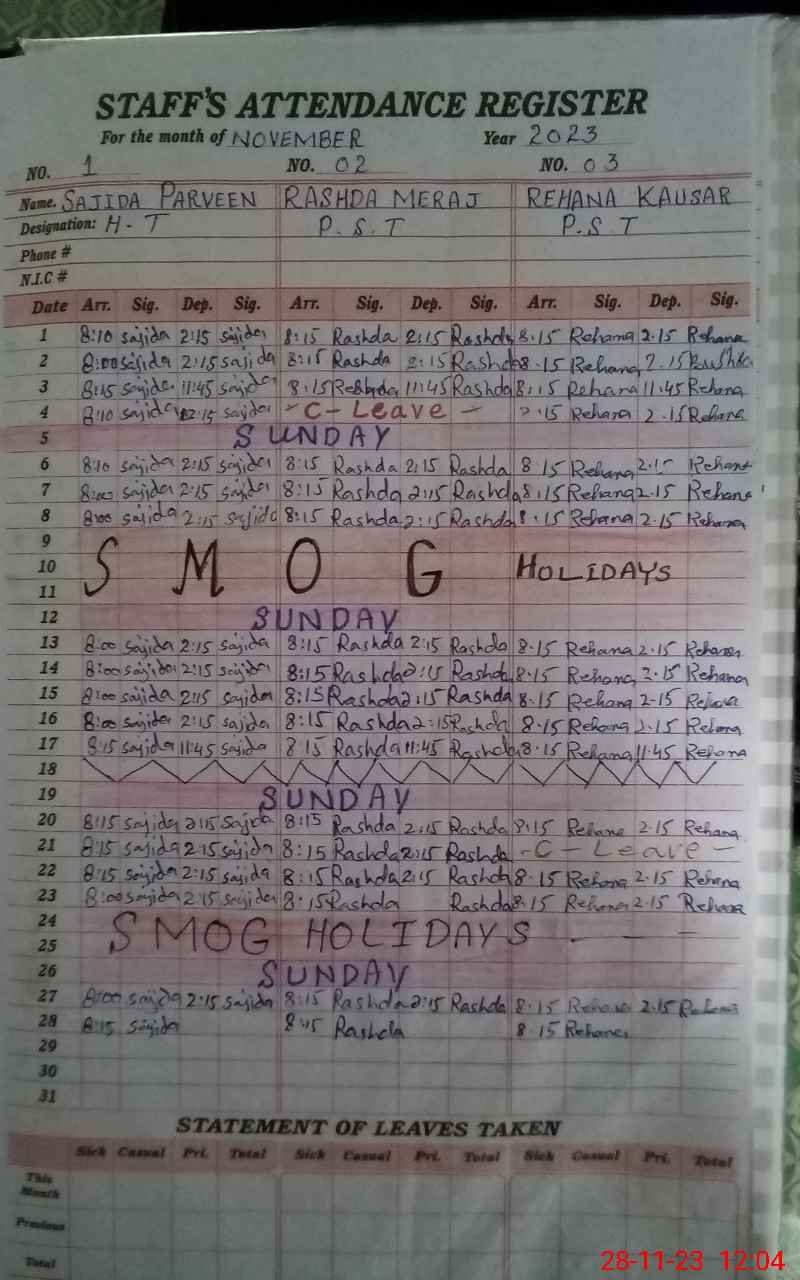 STAFF'S ATTENDANCE REGISTER
For the month of NOVEMBER Year 2023
NO. 1 NO. 02 NO. 03
Name. SAJIDA PARVEEN RASHDA MERAJ REHANA KAUSAR
Designation: H-T P.S.T P.S.T
Phone #
N.I.C #
Date Arr. Sig. Dep. Sig. Arr. Sig. Dep. Sig. Arr. Sig. Dep. Sig.
1 8:10 sajida 2:15 sajida 8:15 Rashda 2:15 Rashda 8.15 Rehana 2.15 Rehana
2 8:00 sajida 2:15 sajida 8:15 Rashda 2:15 Rashda 8.15 Rehana 2.15
3 8:15 sajida 11:45 sajida 8.15 11:45 Rashda 8:15 Rehana 11.45 Rehana
4 8:10 sajida sajida - C - Leave - Rehana 2.15 Rehana
5 SUNDAY
6 8:10 sajida 2:15 sajida 8:15 Rashda 2:15 Rashda 8.15 Rehana Rehana
7 8:00 sajida 2:15 sajida 8:15 Rashda 2:15 Rashda 8.15 Rehana 2.15 Rehana
8 8:00 sajida 2:15 sajida 8:15 Rashda 2:15 Rashda 8.15 Rehana 2.15 Rehana
9
10 SMOG HOLIDAYS
11
12 SUNDAY
13 8:00 sajida 2:15 sajida 8:15 Rashda 2:15 Rashda 8.15 Rehana 2.15 Rehana
14 8:00 sajida 2:15 sajida 8:15 Rashda 2:15 Rashda 8.15 Rehana 2.15 Rehana
15 8:00 sajida 2:15 sajida 8:15 Rashda 2:15 Rashda 8.15 Rehana 2.15 Rehana
16 8:00 sajida 2:15 sajida 8:15 Rashda 2:15 Rashda 8.15 Rehana 2.15 Rehana
17 8:15 sajida 11:45 sajida 8:15 Rashda 11:45 Rashda 8.15 Rehana 11.45 Rehana
18
19 SUNDAY
20 8:15 sajida 2:15 sajida 8:15 Rashda 2:15 Rashda 8:15 Rehana 2.15 Rehana
21 8:15 sajida 2:15 sajida 8:15 Rashda 2:15 Rashda - C - Leave -
22 8:15 sajida 2:15 sajida 8:15 Rashda 2:15 Rashda 8.15 Rehana 2.15 Rehana
23 8:00 sajida 2:15 sajida 8:15 Rashda Rashda 8.15 Rehana 2.15 Rehana
24 SMOG HOLIDAYS - - -
25
26 SUNDAY
27 8:00 sajida 2:15 sajida 8:15 Rashda 2:15 Rashda 8.15 Rehana 2.15 Rehana
28 8:15 sajida 8:15 Rashda 8.15 Rehana
29
30
31
STATEMENT OF LEAVES TAKEN
Sick Casual Pri. Total Sick Casual Pri. Total Sick Casual Pri. Total
This Month
Previous
Total
28-11-23 12:04